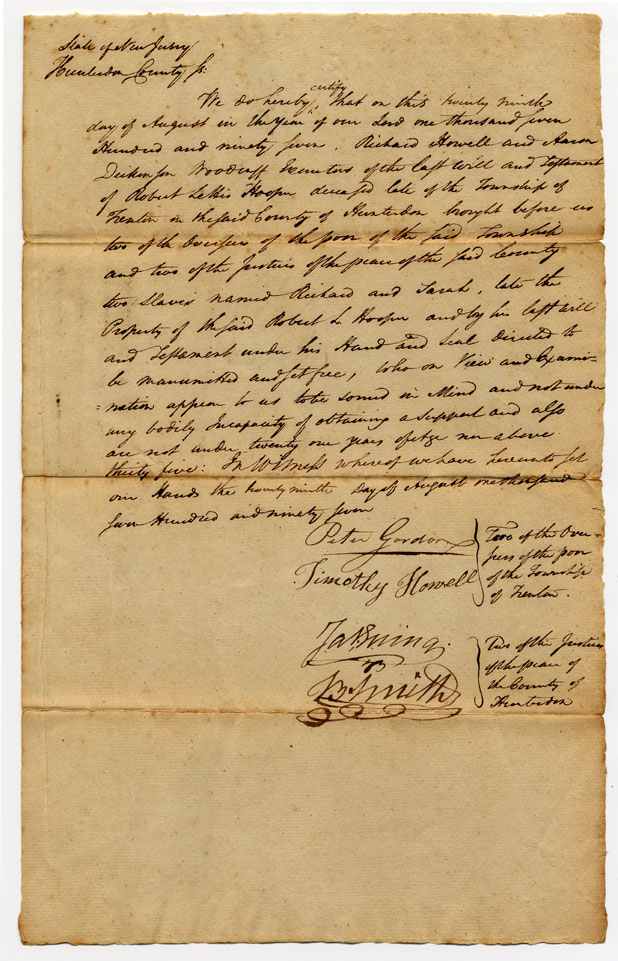 State of New Jersey
Hunterdon County Ss.
We do hereby certify, that on this twenty ninth
day of August in the year of our Lord one thousand seven
Hundred and ninety seven. Richard Howell and Aaron
Dickinson Woodruff Executors of the last Will and Testament
of Robert Lettis Hooper deceased late of the Township of
Trenton in the said County of Hunterdon brought before us
two of the Overseers of the poor of the said Township
and two of the Justices of the peace of the said County
two Slaves named Richard and Sarah, late the
Property of the said Robert L. Hooper and by his last Will
and Testament under his Hand and Seal directed to
be manumitted and set free, who on View and Exami-
-nation appear to us to be sound in Mind and not under
any bodily Incapacity of obtaining a support and also
are not under twenty one years of Age nor above
thirty five: In Witness whereof we have hereunto set
our Hands the twenty ninth day of August one thousand
seven Hundred and ninety seven
Peter Gordon
Timothy Howell
Two of the Over-
seers of the poor
of the Township
of Trenton.
Jas. Ewing.
B. Smith
Two of the Justices
of the peace of
the County of
Hunterdon